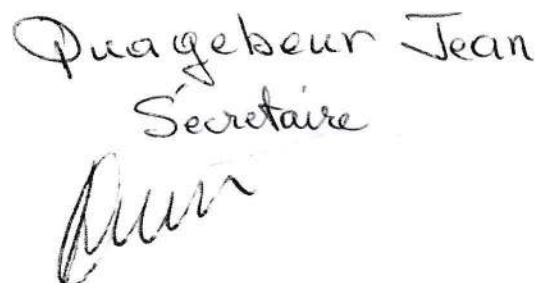 Quagebeur Jean
Sécretaire